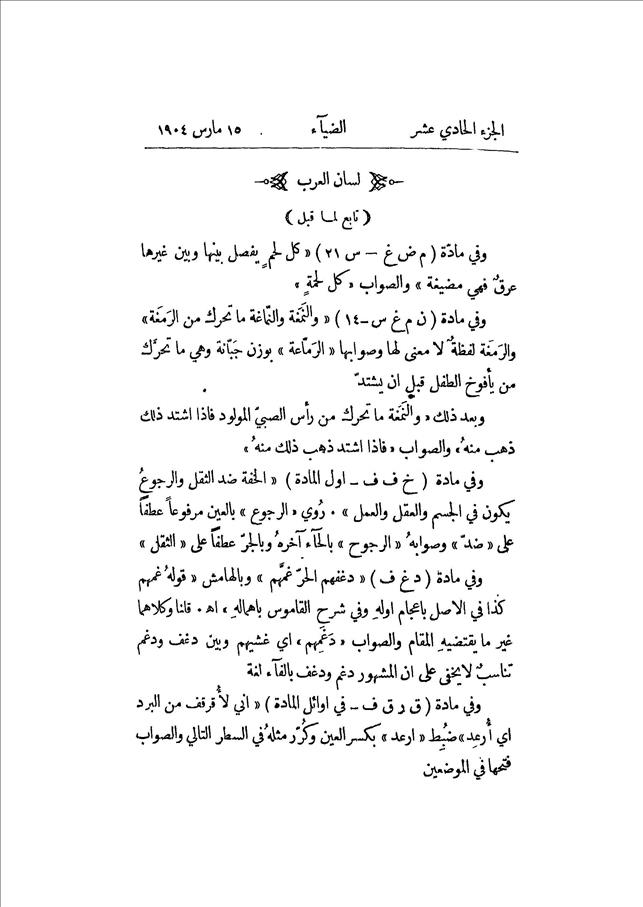 الجزء الحادي عشر الضيآء ١٥ مارس ١٩٠٤
لسان العرب
( تابع لما قبل )
وفي مادّة ( م ض غ – س ٢١ ) « كل لحمٍ يفصل بينها وبين غيرها
عرقٌ فهي مضيغة » والصواب « كل لحمةٍ »
وفي مادة ( ن م غ س – ١٤ ) « والنَّمَغة والنّماغة ما تحرك من الرَمَغَة »
والرَمَغة لفظةٌ لا معنى لها وصوابها « الرَمّاعة » بوزن جَبّانة وهي ما تحرَّك
من يأفوخ الطفل قبل ان يشتدّ
وبعد ذلك « والنَّمَغة ما تحرك من رأس الصبيّ المولود فاذا اشتد ذلك
ذهب منهُ » والصواب « فاذا اشتد ذهب ذلك منهُ »
وفي مادة ( خ ف ف – اول المادة ) « الخفة ضد الثقل والرجوعُ
يكون في الجسم والعقل والعمل » . رُوي « الرجوع » بالعين مرفوعاً عطفاً
على « ضدّ » وصوابهُ « الرجوح » بالحآء آخرهُ وبالجرّ عطفاً على « الثقل »
وفي مادة ( د غ ف ) « دغفهم الحرّ غمَّهم » وبالهامش « قولهُ غمهم
كذا في الاصل باعجام اولهِ وفي شرح القاموس باهمالهِ » اه . قلنا وكلاهما
غير ما يقتضيهِ المقام والصواب « دَغَمهم » اي غشيهم وبين دغف ودغم
تناسبٌ لا يخفى على ان المشهور دغم ودغف بالفآء لغة
وفي مادة ( ق ر ق ف – في اوائل المادة ) « اني لأُقرقف من البرد
اي أُرعِد » ضُبِط « ارعد » بكسر العين وكُرّر مثلهُ في السطر التالي والصواب
فتحها في الموضعين